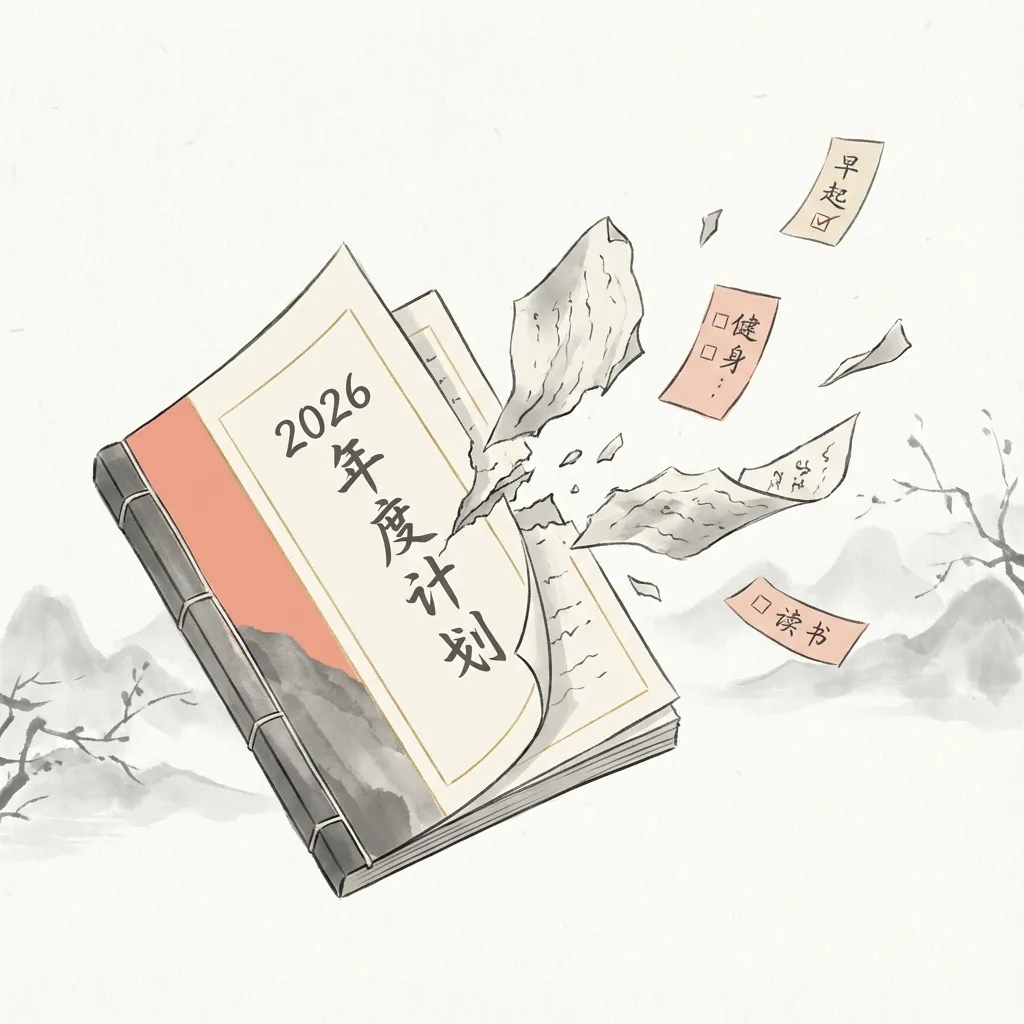 2026
年度计划
早起☑
□健
□身…
□读书